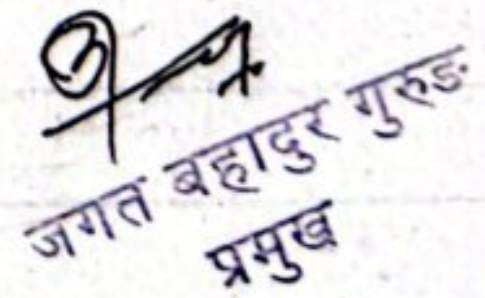 जगत बहादुर गुरुङ
प्रमुख